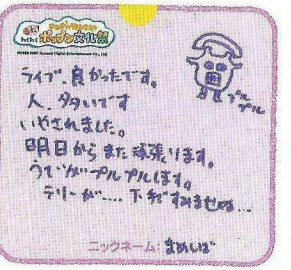 ポップン文化祭
ライブ、良かったです。
人、多いです
いやされました。
明日からまた頑張ります。
うでがプルプルします。
テリーが.... 下手ですみません...
プル
プル
ニックネーム: まめしば